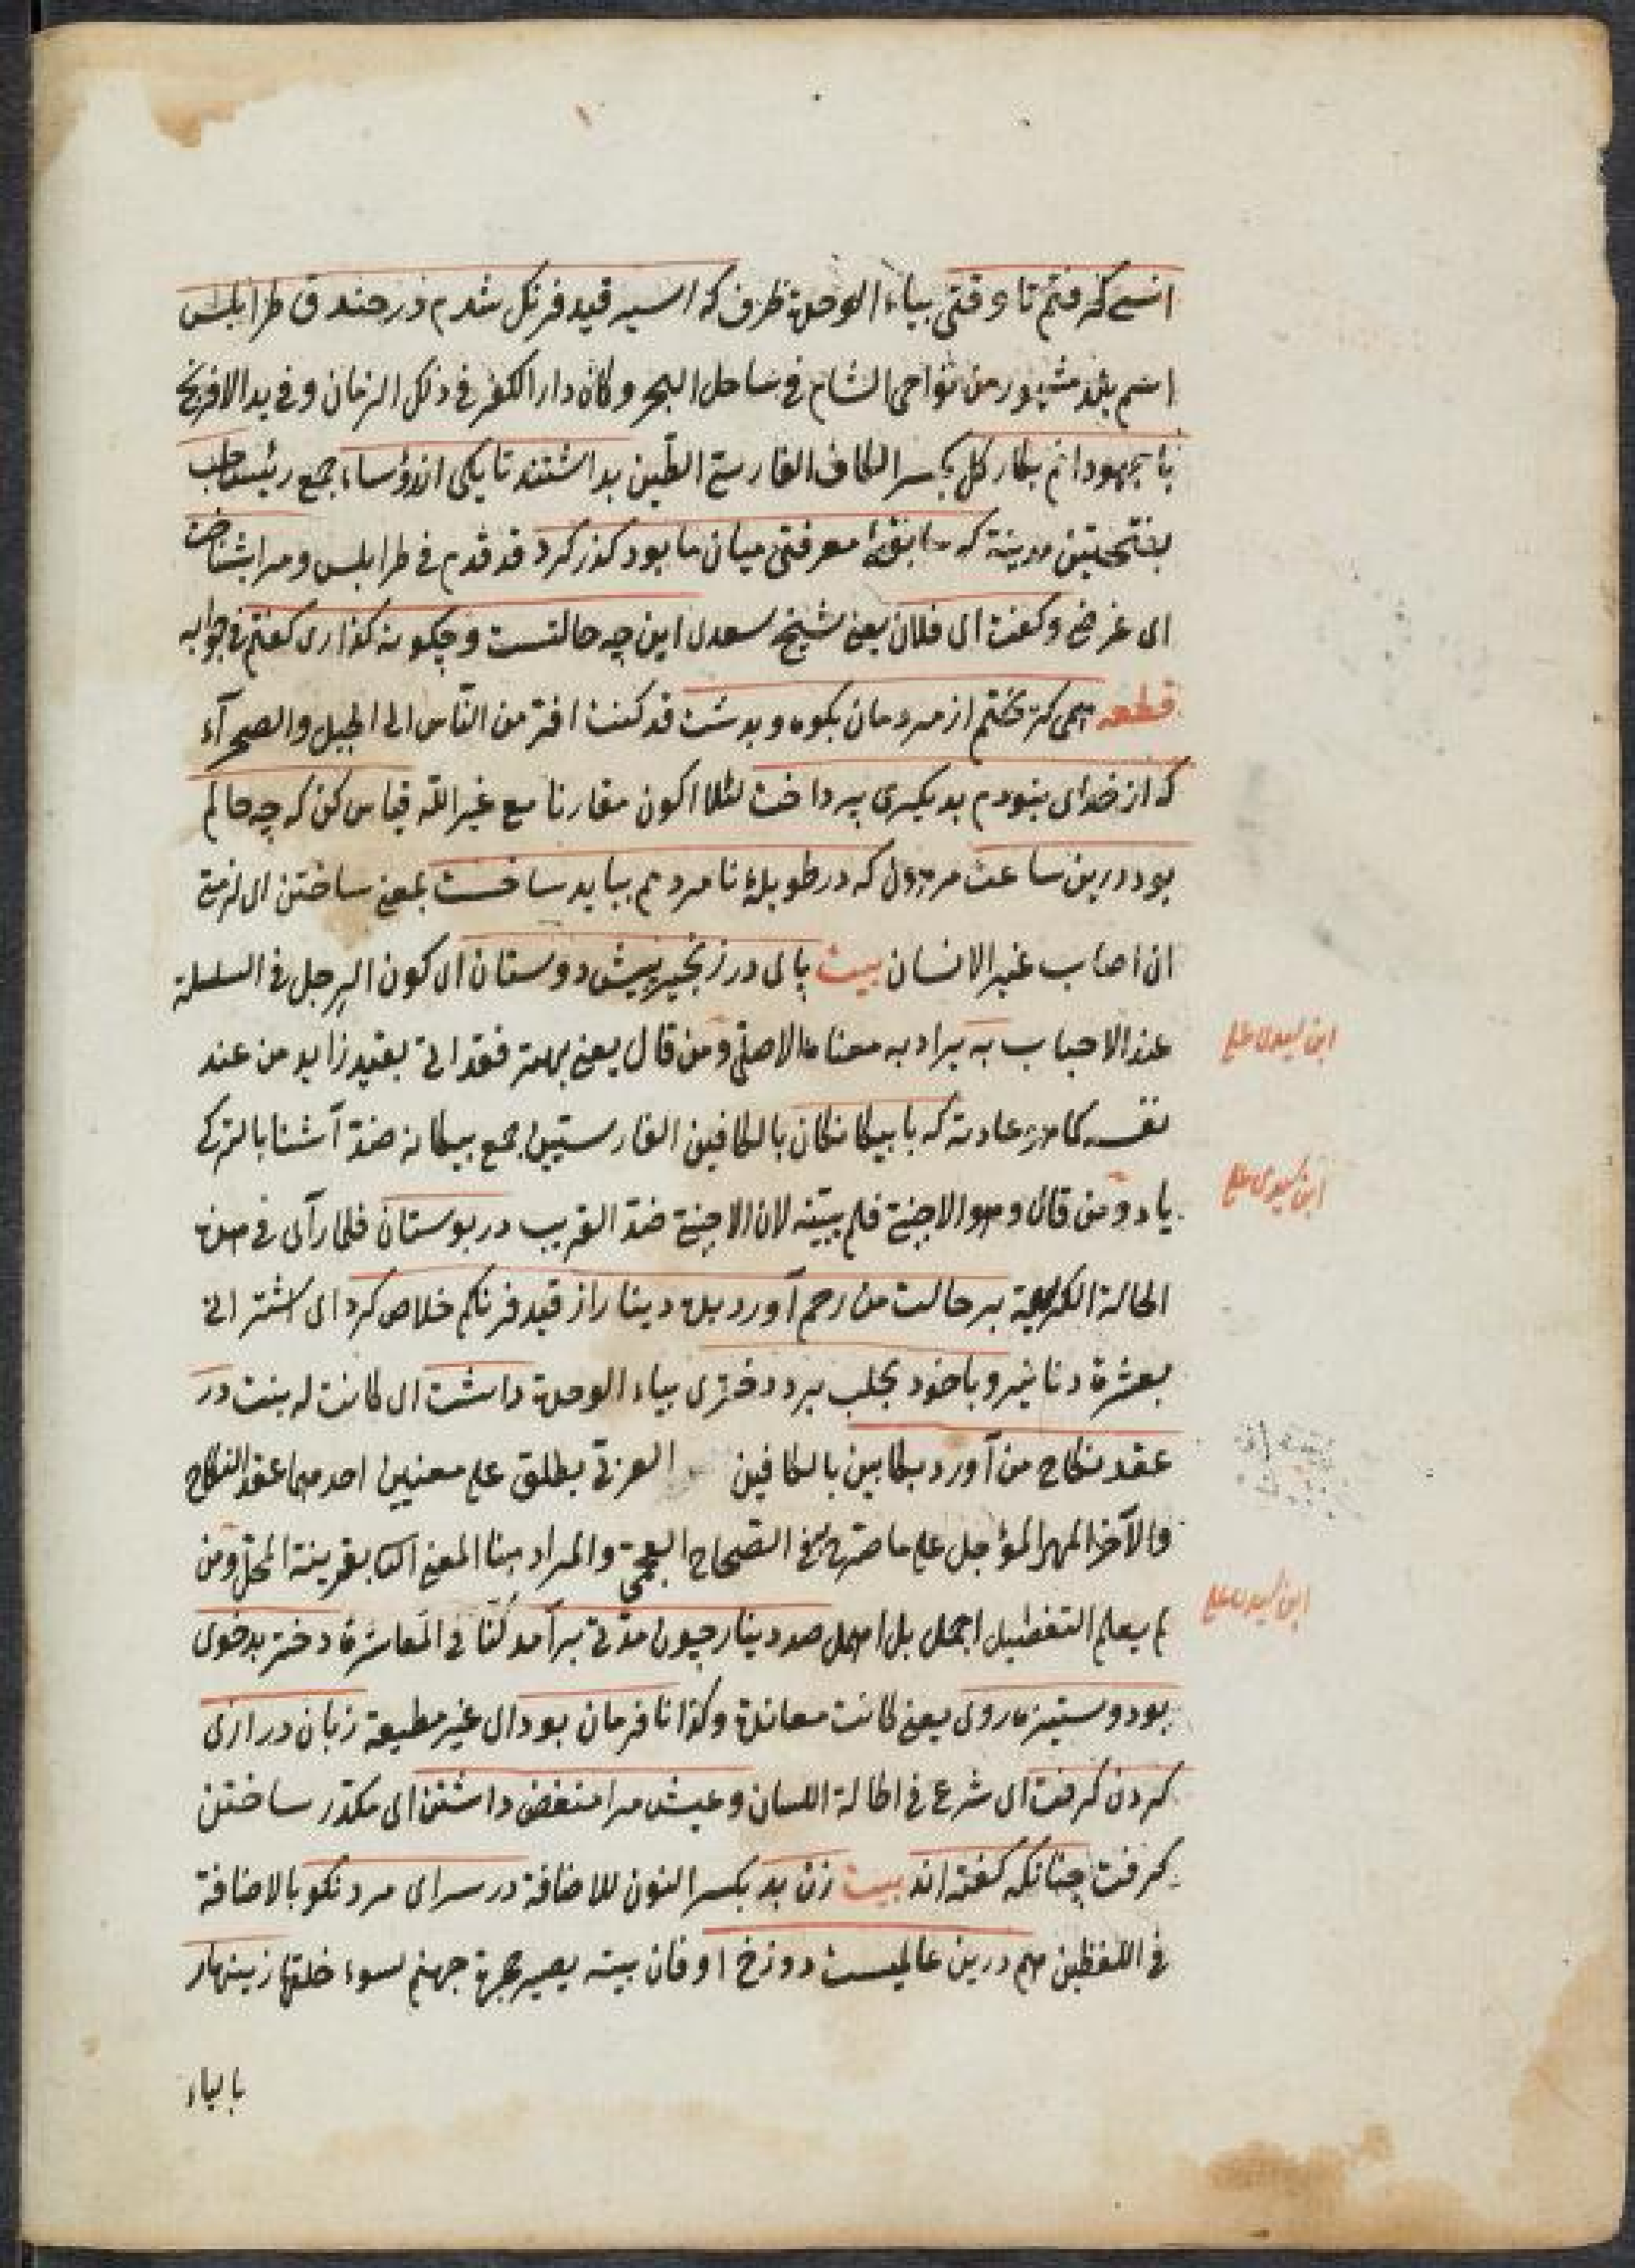 انسی گرفتم تا وقتی بیاء الوحدة ظرف که اسیر قید فرنگ شدم در خندق طرابلس
اسم بلد مشهور من نواحی الشام فی ساحل البحر وكان دار الكفر فی ذلك الزمان وفی ید الافرنج
با جهودانم بکار گل بکسر الکاف الفارسیة الطین بداشتند تا یکی از رؤساء جمع رئیس حلب
بفتحتین مدینة که سابقهٔ معرفتی میان ما بود گذر کرد قد قدم فی طرابلس ومرا بشناخت
ای عرفنی وگفت ای فلان یعنی شیخ سعدی این چه حالتست وچگونه گذاری گفتم فی جوابه
قطعه همی گریختم از مردمان بکوه وبدشت قد كنت افرّ من النّاس الی الجبل والصحرآء
که از خدای نبودم بدیگری پرداخت لئلا اکون مقارنا مع غیر الله قیاس کن که چه حالم
بود درین ساعت که در طویلهٔ نامردم بباید ساخت بمعنی ساختن
ان اصاب غیر الانسان بیت پای در زنجیر پیش دوستان ای کون الرجل فی السلسلة
عند الاحباب به یراد به معناه الاصلیّ ومن قال یعنی بهتر فقد اتی بقید زاید من عند
نفسه کما هو عادته که با بیگانگان بالکافین الفارسیتین جمع بیگانه ضدّ آشنا بالترکی
یاد ومن قال وهو الاجنبیّ فلم یبیّنه لان الاجنبیّ ضدّ القریب در بوستان فلما رآنی فی هذه
الحالة الکریهة بر حالت من رحم آورد بده دینار از قید فرنگم خلاص کرد ای اشترانی
بعشرة دنانیر وباخود بحلب برد دختری بیاء الوحدة داشت ای کانت له بنت در
عقد نکاح من آورد بکابین بالکافین العربیّ یطلق علی معنیین احدهما عقد النکاح
والآخر المهر المؤجل علی ما صرّح فی الصحاح العجمیّ والمراد هنا المعنی الثانی بقرینة المحلّ ومن
لم یعلم التفصیل اجمل بل اهمل صد دینار چون مدّتی برآمد کنّا فی المعاشرة دختر بدخوی
بود وستیزه روی یعنی کانت معاندة وکذا نافرمان بود ای غیر مطیعة زبان درازی
کردن گرفت ای شرع فی اطالة اللسان وعیش مرا منغض داشتن ای مکدّر ساختن
گرفت چنانکه گفته اند بیت زن بد بکسر النون للاضافة در سرای مرد نکو بالاضافة
فی اللفظین هم درین عالمست دوزخ او فان بیته یصیر حجرة جهنم لسوء خلقها زینهار
بالیاء
ابن سیدی علی
ابن سیدی علی
ابن سیدی علی